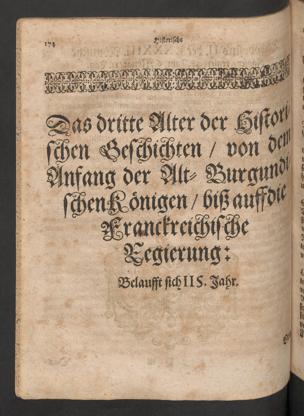 174
Historische
Das dritte Alter der Histori
schen Geschichten / von dem
Anfang der Alt- Burgundi
schen Königen / biß auff die
Franckreichische
Regierung:
Belaufft sich IIS. Jahr.